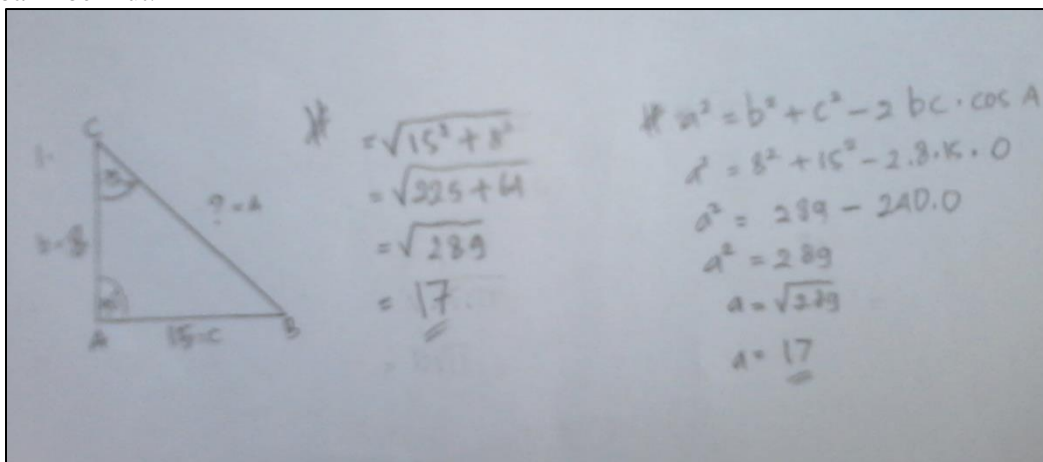 C
? = a
b = 8
A
15 = c
B
= √15² + 8²
= √225 + 64
= √289
= 17
# a² = b² + c² - 2 bc . cos A
a² = 8² + 15² - 2.8.15 . 0
a² = 289 - 240.0
a² = 289
a = √289
a = 17